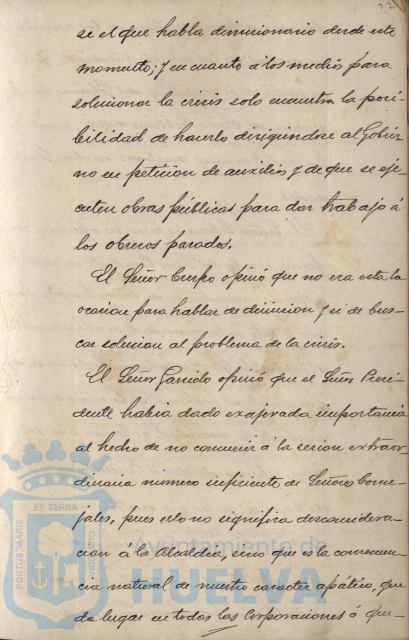 se el que habla dimisionario desde este
momento; y en cuanto á los medios para
solucionar la crisis solo encuentra la posi-
bilidad de hacerlo dirigiendose al Gobier
no en peticion de auxilios y de que se eje-
cuten obras públicas para dar trabajo á
los obreros parados.
El Señor Crespo opinó que no era esta la
ocasion para hablar de dimision y si de bus-
car solucion al problema de la crisis.
El Señor Garrido opinó que el Señor Presi-
dente habia dado exajerada importancia
al hecho de no concurrir á la sesion extraor
dinaria número suficiente de Señores Conce-
jales, pues ello no significa desconsidera-
cion á la Alcaldia, sino que es la consecuen-
cia natural de nuestro caracter apático, que
da lugar en todas las Corporaciones á que-
PORTUS MARIS ET TERRAE CUSTODIA
Ayuntamiento de
HUELVA